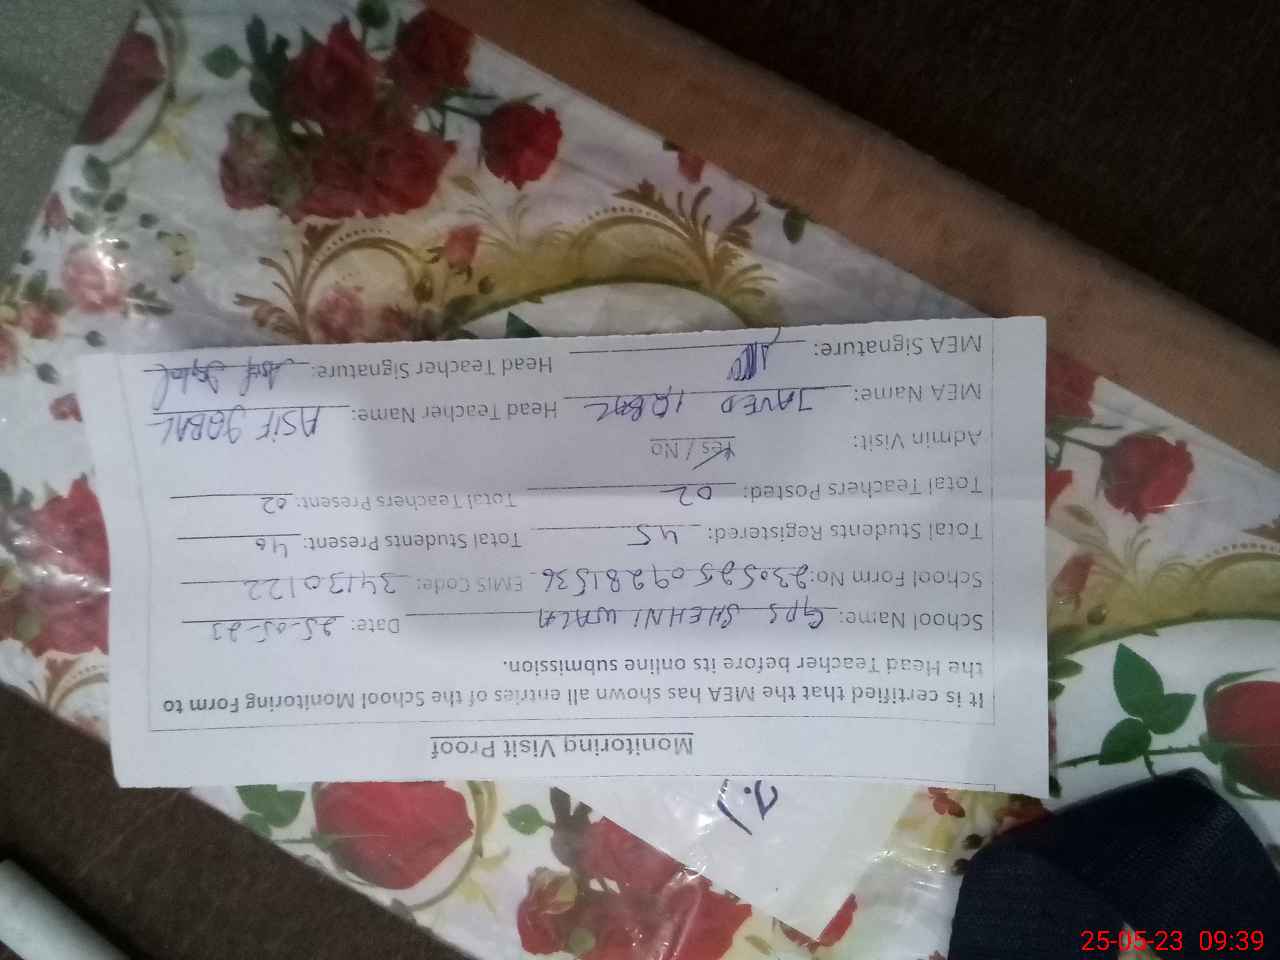 Monitoring Visit Proof
It is certified that the MEA has shown all entries of the School Monitoring Form to
the Head Teacher before its online submission.
School Name: GPS SHEHNI WALA Date: 25-05-23
School Form No: 23052509281536 EMIS Code: 34130122
Total Students Registered: 45 Total Students Present: 40
Total Teachers Posted: 02 Total Teachers Present: 02
Admin Visit: Yes / No
MEA Name: JAVED IQBAL Head Teacher Name: ASIF IQBAL
MEA Signature: Head Teacher Signature: Asif Iqbal
25-05-23 09:39